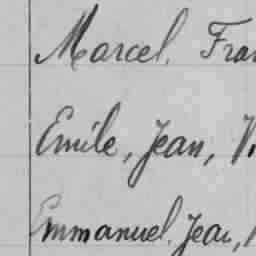 Marcel, Fran
Emile, Jean, V
Emmanuel, Jean,